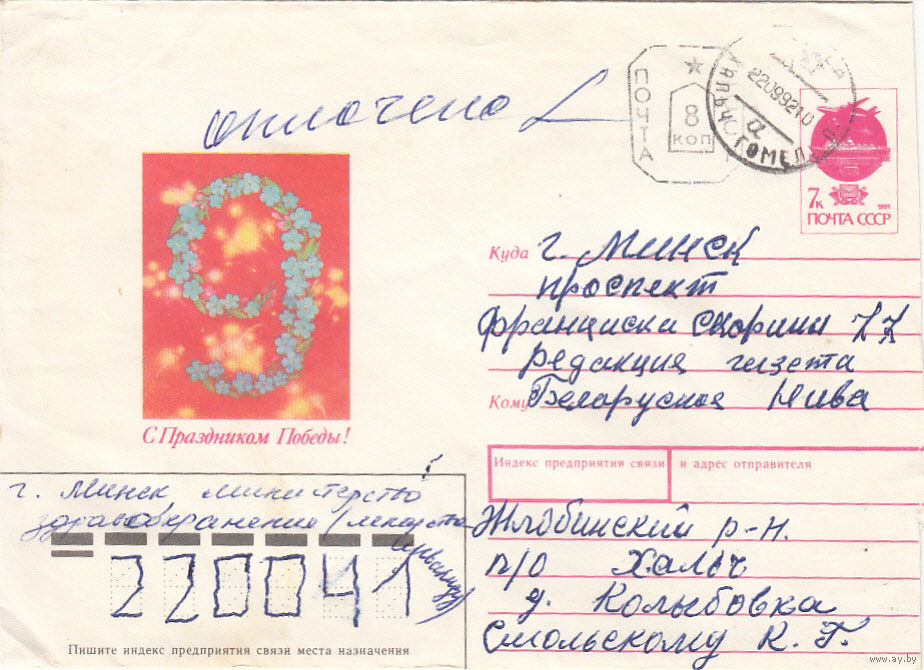 оплачено
ПОЧТА
8
КОП
ХАЛЬЧ ГОМЕЛ. О.
22099210
а
7к
1991
ПОЧТА СССР
С Праздником Победы!
Куда г. Минск
проспект
Франциска Скорины 77
редакция газета
Кому Беларуская Нива
Индекс предприятия связи и адрес отправителя
Жлобинский р-н.
п/о Хальч
д. Колыбовка
Смольскому К. Г.
г. Минск министерство
здравоохранение (лекарства
инвалиду)
220041
Пишите индекс предприятия связи места назначения
www.ay.by